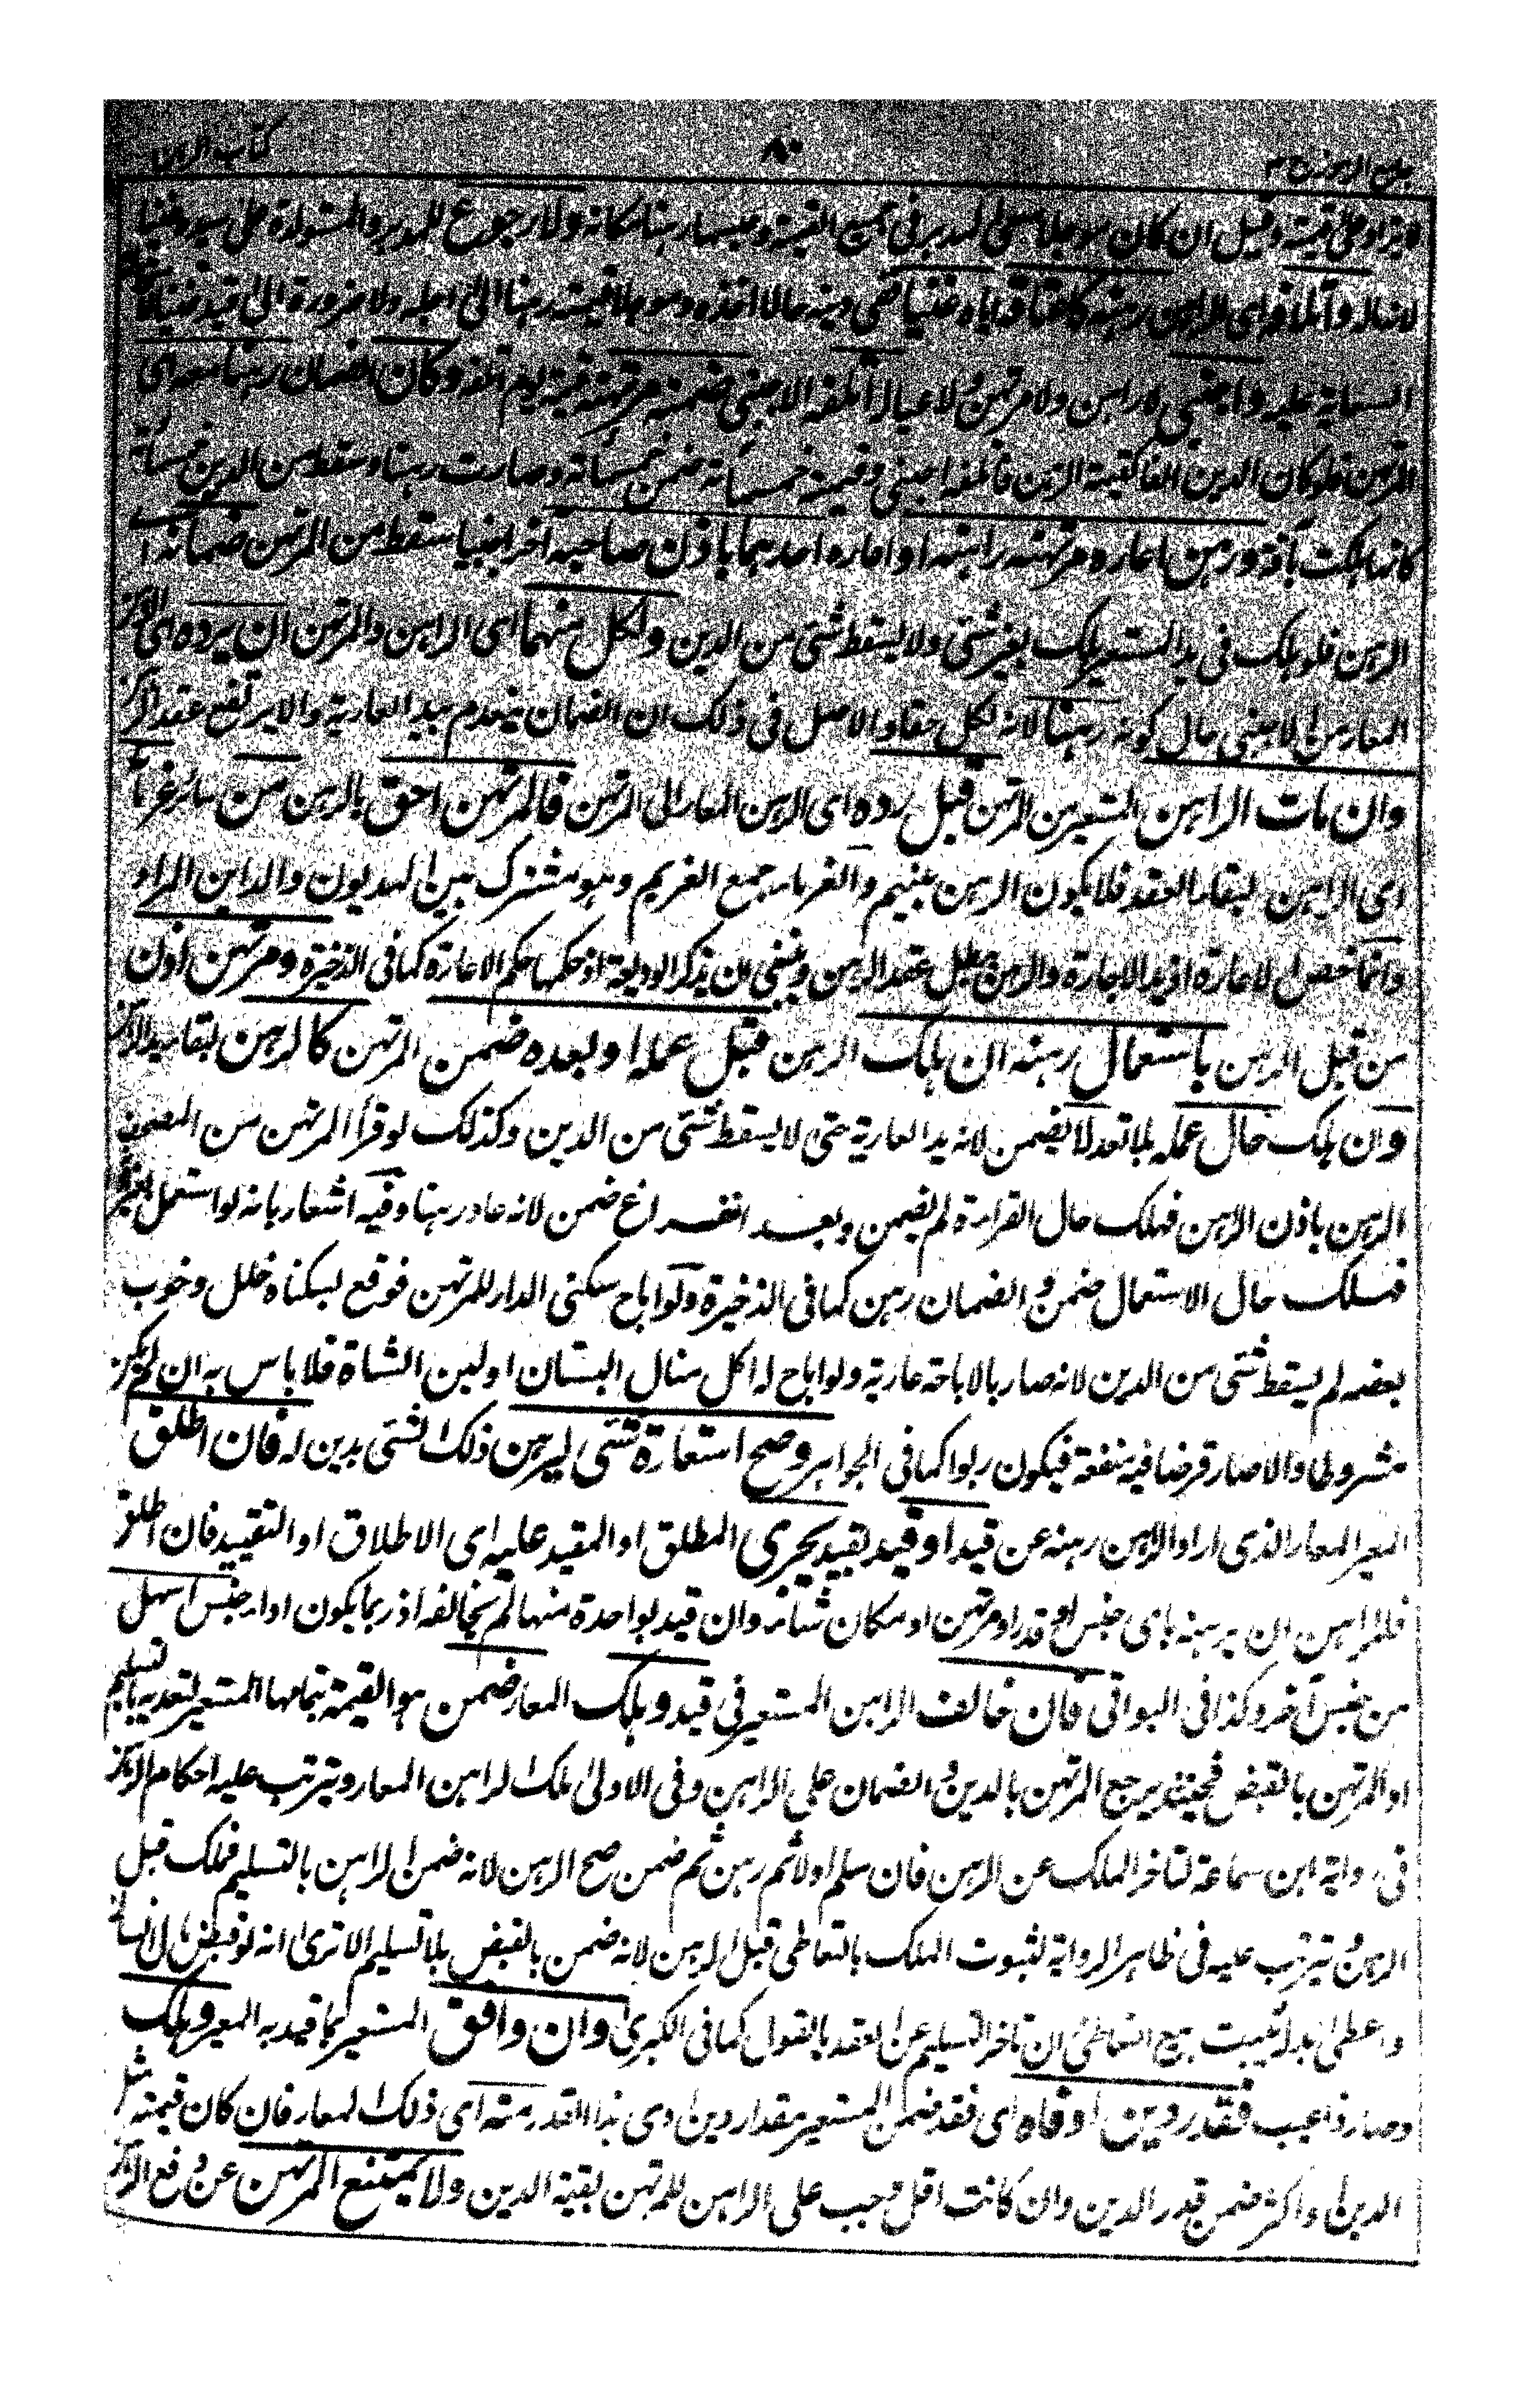 جامع الرموز ج ٣ ٨٠ كتاب الرهن
لا يزاد على قيمة وقيل ان كان موجلا يسعى المدبر في جميع القيمة وحبسها رهنا مكانه ولا رجوع للمدبر والمستولدة على سيده غنيا
لانه اداه واتلافه اى الراهن رهنه كاعتاقه اياه غنيا ففى دينه حالا اخذه وموجلا قيمته رهنا الى اجله ولا ضرورة الى قيد غنيا
السعاية عليه واجنبي لا راهن ولا مرتهن ولا عياله اتلفه الاجنبى ضمنه مرتهنه قيمة يوم اتلفه وكان الضمان رهنا معه اى
المرتهن فلو كان الدين الفا كقيمة الرهن فاتلفه اجنبي وقيمته خمسمائة ضمن خمسمائة وصارت رهنا وسقط من الدين خمسمائة
كانها هلكت بآفة ورهن اعاره مرتهنه راهنه او اعاره احدهما باذن صاحبه آخر اجنبيا سقط من المرتهن ضمانه اى
الرهن فلو هلك في يد المستعير هلك بغير شئ ولا يسقط شئ من الدين ولكل منهما اى الراهن والمرتهن ان يرده اى الرهن
المعار من الاجنبى حال كونه رهنا لانه لكل حقا والاصل فى ذلك ان الضمان ينعدم بيد العارية والا يرتفع عقد الرهن
وان مات الراهن المستعير من المرتهن قبل رده اى الرهن المعار الى المرتهن فالمرتهن احق بالرهن من سائر غرمائه
اى الراهن لبقاء العقد فلا يكون الرهن بينهم والغرماء جمع الغريم وهو مشترك بين المديون والداين المراد
وانما خص الاعارة اذ يد الاجارة والرهن يبطل عقد الرهن وينبغى ان يذكر الوديعة اذ حكمها حكم الاعارة كما فى الذخيرة ومرتهن اذن
من قبل الرهن باستعمال رهنه ان هلك الرهن قبل عمله او بعده ضمن المرتهن كالرهن لبقاء يد الرهن
وان هلك حال عمله بلا تعد لا يضمن لانه يد العارية حتى لا يسقط شئ من الدين وكذلك لو قرأ المرتهن من المصحف
الرهن باذن الراهن فهلك حال القراءة لم يضمن وبعد الفراغ ضمن لانه عاد رهنا وفيه اشعار بانه لو استعمل
فهلك حال الاستعمال ضمن والضمان رهن كما فى الذخيرة ولو اباح سكنى الدار للمرتهن فوقع بسكناه خلل وخرب
بعضه لم يسقط شئ من الدين لانه صار بالاباحة عارية ولو اباح له اكل منال البستان او لبن الشاة فلا باس به ان لم يكن
مشروطا والا صار قرضا فيه منفعة فيكون ربوا كما فى الجواهر وصح استعارة شئ ليرهن ذلك الشئ بدين له فان اطلق
المعير المعار الذى اراد الراهن رهنه عن قيد او قيد بقيد يجرى المطلق او المقيد عليه اى الاطلاق او التقييد فان اطلق
فللراهن ان يرهنه باى جنس او قدر او مرتهن او مكان شاء وان قيد بواحدة منها لم يخالفه اذ ربما يكون اداء جنس اسهل
من جنس آخر وكذا فى البواقى فان خالف الراهن المستعير فى قيد وهلك المعار ضمن هو القيمة بتمامها المستعير لتعديه بالتسليم
او المرتهن بالقبض فحينئذ يرجع المرتهن بالدين والضمان على الراهن وفى الاولى ملك الراهن المعار ويترتب عليه احكام الرهن
فى رواية ابن سماعة لتاخر الملك عن الرهن فان سلم اولا ثم رهن ثم ضمن صح الرهن لانه ضمن الراهن بالتسليم فملك قبل
الرهن و يترتب عليه فى ظاهر الرواية لثبوت الملك بالتعاطى قبل الرهن لانه ضمن بالقبض بلا تسليم الا ترى انه لو قبض
واعطى بدله يثبت بيع التعاطى ان تاخر التسليم عن العقد بالقول كما فى الكبرى وان وافق المستعير بما قيد به المعير وهلك
وصار ذا عيب فقدر دين اوفاه اى فقد ضمن المستعير مقدار دين ادى هذا القدر منه اى ذلك المعار فان كان قيمته مثل
الدين او اكثر ضمن قدر الدين وان كانت اقل وجب على الراهن للمرتهن بقية الدين ولا يمتنع المرتهن عن دفع الرهن